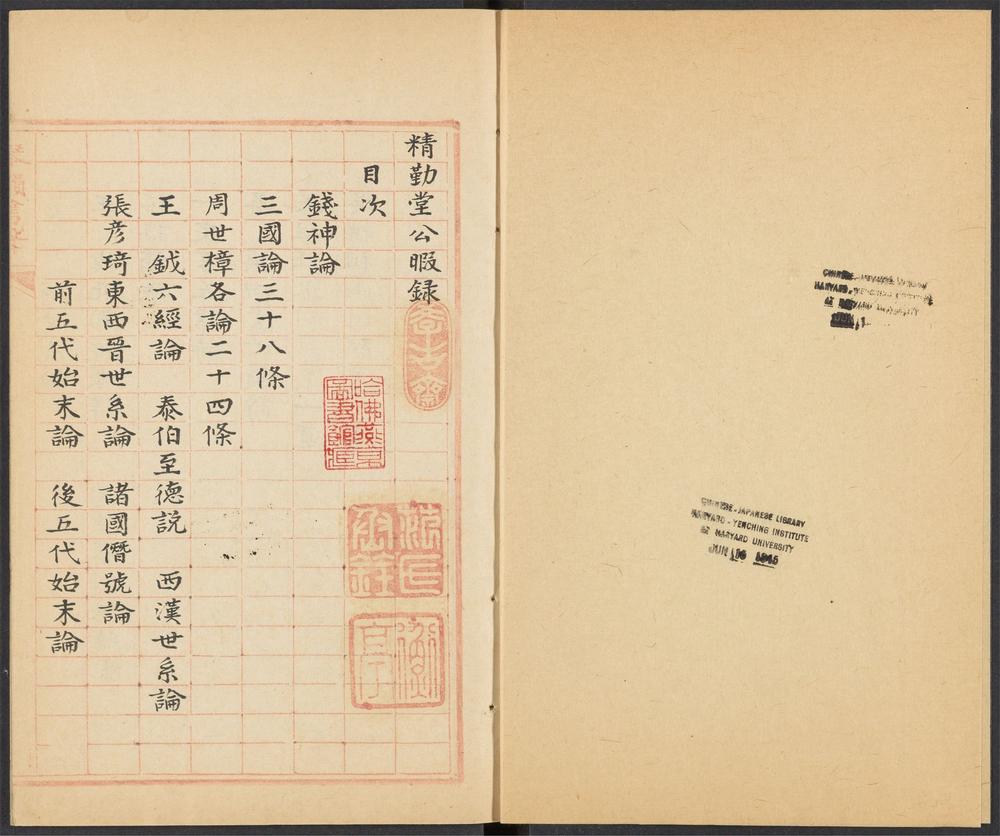 精勤堂公暇録
目次
錢神論
三國論三十八條
周世樟各論二十四條
王 鉞六經論 泰伯至德説 西漢世系論
張彦琦東西晉世系論 諸國僭號論
前五代始末論 後五代始末論
哈佛燕京
圖書館藏
CHINESE-JAPANESE LIBRARY
HARVARD-YENCHING INSTITUTE
AT HARVARD UNIVERSITY
CHINESE-JAPANESE LIBRARY
HARVARD-YENCHING INSTITUTE
AT HARVARD UNIVERSITY
JUN 16 1945